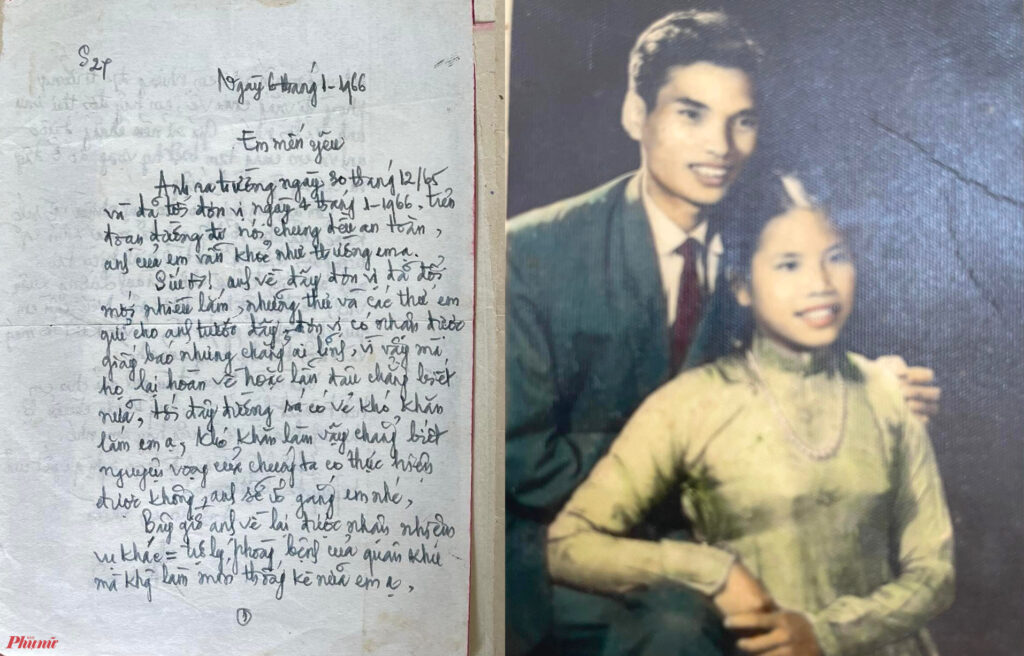 S27
Ngày 6 tháng 1-1966
Em mến yêu
Anh ra trường ngày 30 tháng 12/65
và đã tới đơn vị ngày 4 tháng 1-1966. trên
đoạn đường đi nói chung đều an toàn,
anh của em vẫn khoẻ như trường em ạ.
anh về đây đơn vị đã đổi
mới nhiều lắm, những thư và các thứ em
gửi cho anh trước đây, đơn vị có nhận được
giấy báo nhưng chẳng ai lĩnh, vì vậy mà
họ lại hoàn về hoặc lần đâu chẳng biết
nữa, tới đây đường sá có vẻ khó khăn
lắm em ạ, khó khăn lắm vậy chẳng biết
nguyện vọng của chúng ta có thực hiện
được không, anh sẽ cố gắng em nhé,
Bây giờ anh về lại được nhận nhiệm
vụ khác = lý phòng bệnh của quân khu
mà khg làm môn thống kê nữa em ạ,
Phunữ